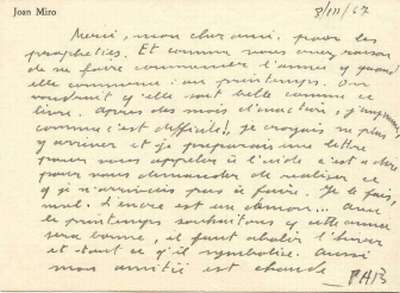 Joan Miro
3/III/67
Merci, mon cher ami, pour les
prophéties. Et comme vous avez raison
de ne faire commencer l'année q quand
elle commence: au printemps. On
voudrait q'elle soit belle comme ce
livre. Après des mois d'inactivité,
comme c'est difficile! je croyais ne plus
y arriver et je préparais une lettre
pour vous appeler à l'aide c'est à dire
pour vous demander de réaliser ce
q je n'arrivais pas à faire. Je le fais,
mal. L'encre est un démon... Avec
le printemps souhaitons q cette année
sera bonne, il faut abolir l'hiver
et tout ce q'il symbolise. Aussi
mon amitié est chaude